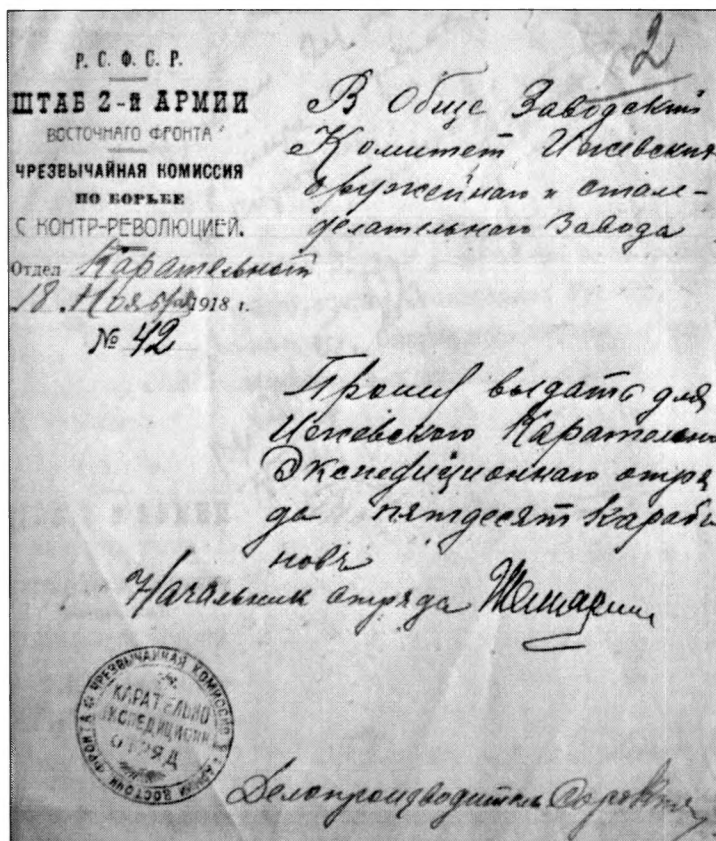 2
Р. С. Ф. С. Р.
ШТАБ 2-й АРМИИ
ВОСТОЧНАГО ФРОНТА
ЧРЕЗВЫЧАЙНАЯ КОМИССИЯ
ПО БОРЬБЕ
С КОНТР-РЕВОЛЮЦИЕЙ.
Отдел Карательной
18 Ноября 1918 г.
№ 42
В Обще Заводский
Комитет Ижевских
оружейнаго и стале-
делательного Завода
Прошу выдать для
Ижевского Карательно
Экспедиционнаго отря
да пятдесят Караби
новъ
Начальник отряда
ЧРЕЗВЫЧАЙНАЯ КОМИССИЯ
ВОСТОЧН ФРОНТА
КАРАТЕЛЬНО
ЭКСПЕДИЦИОН
ОТРЯД
Делопроизводитель